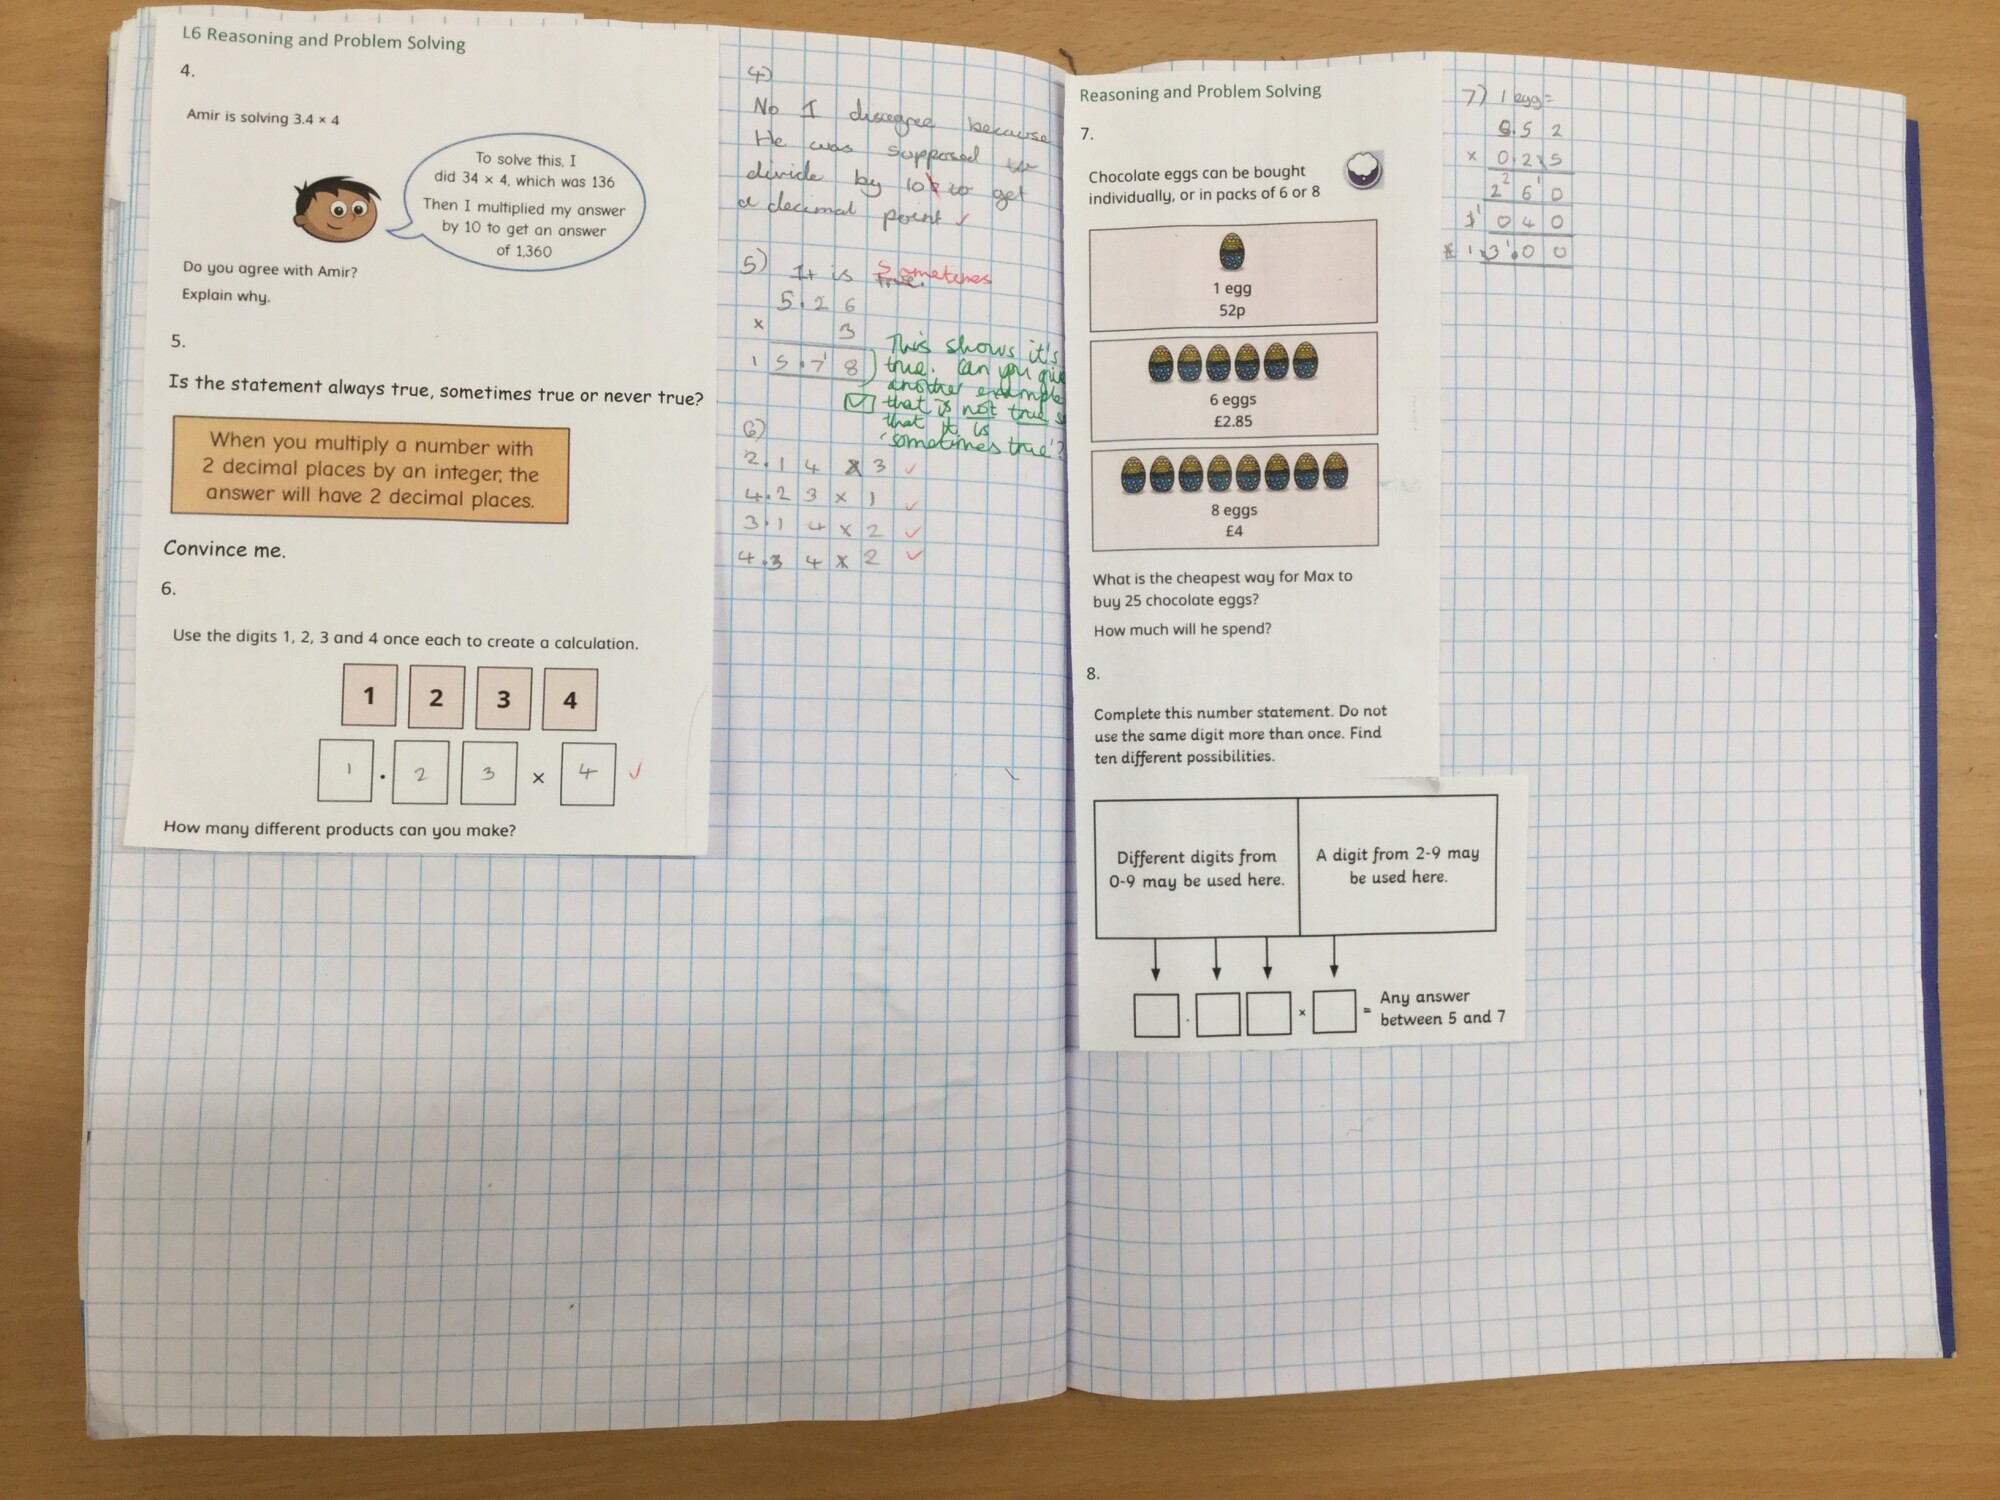 L6 Reasoning and Problem Solving
4.
Amir is solving 3.4 × 4
To solve this, I
did 34 × 4, which was 136
Then I multiplied my answer
by 10 to get an answer
of 1,360
Do you agree with Amir?
Explain why.
5.
Is the statement always true, sometimes true or never true?
When you multiply a number with
2 decimal places by an integer, the
answer will have 2 decimal places.
Convince me.
6.
Use the digits 1, 2, 3 and 4 once each to create a calculation.
1 2 3 4
1 . 2 3 × 4 ✓
How many different products can you make?
4)
No I disagree because
He was supposed to
divide by 10 to get
a decimal point ✓
5) It is true. Sometimes
5.26
× 3
15.7¹8
This shows it's
true. Can you give
another example
that is not true so
that it is
'sometimes true'?
6)
2.14 × 3 ✓
4.23 × 1 ✓
3.14 × 2 ✓
4.34 × 2 ✓
Reasoning and Problem Solving
7.
Chocolate eggs can be bought
individually, or in packs of 6 or 8
1 egg
52p
6 eggs
£2.85
8 eggs
£4
What is the cheapest way for Max to
buy 25 chocolate eggs?
How much will he spend?
8.
Complete this number statement. Do not
use the same digit more than once. Find
ten different possibilities.
Different digits from
0-9 may be used here.
A digit from 2-9 may
be used here.
. × = Any answer
between 5 and 7
7) 1 egg=
.52
× 0.25
2²6¹0
1¹040
1 3¹.00